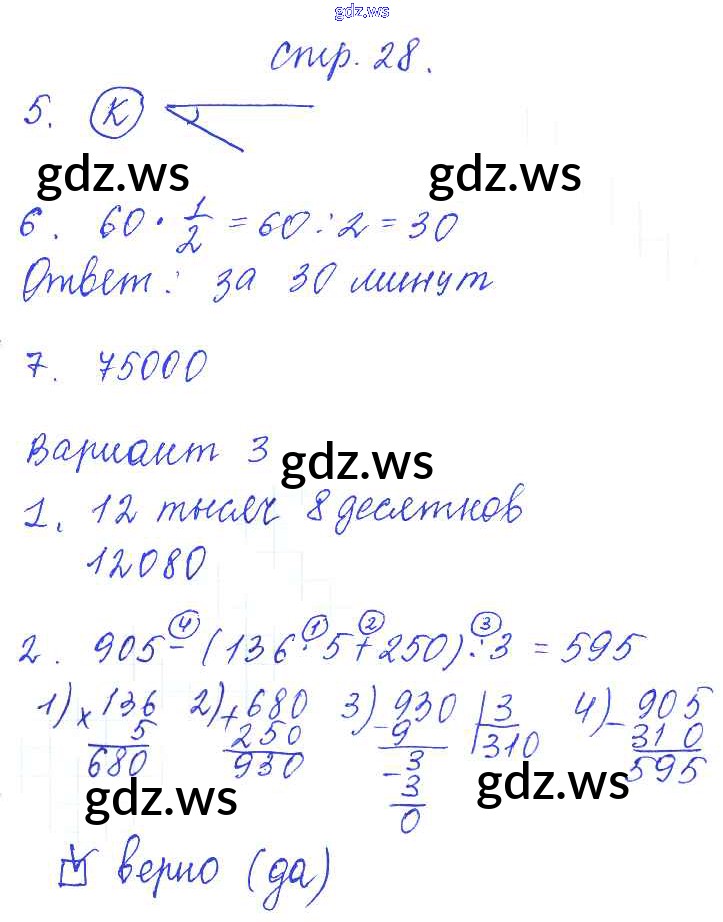 gdz.ws
Стр. 28.
5. К
gdz.ws gdz.ws
6. 60 · 1/2 = 60 : 2 = 30
Ответ: за 30 минут
7. 75000
Вариант 3
gdz.ws
1. 12 тысяч 8 десятков
12080
2. 905 - (136 · 5 + 250) : 3 = 595
4 1 2 3
1) × 136 5 680
2) + 680 250 930
3) 930 3 310 - 9 3 - 3 0
4) - 905 310 595
gdz.ws gdz.ws
верно (да)